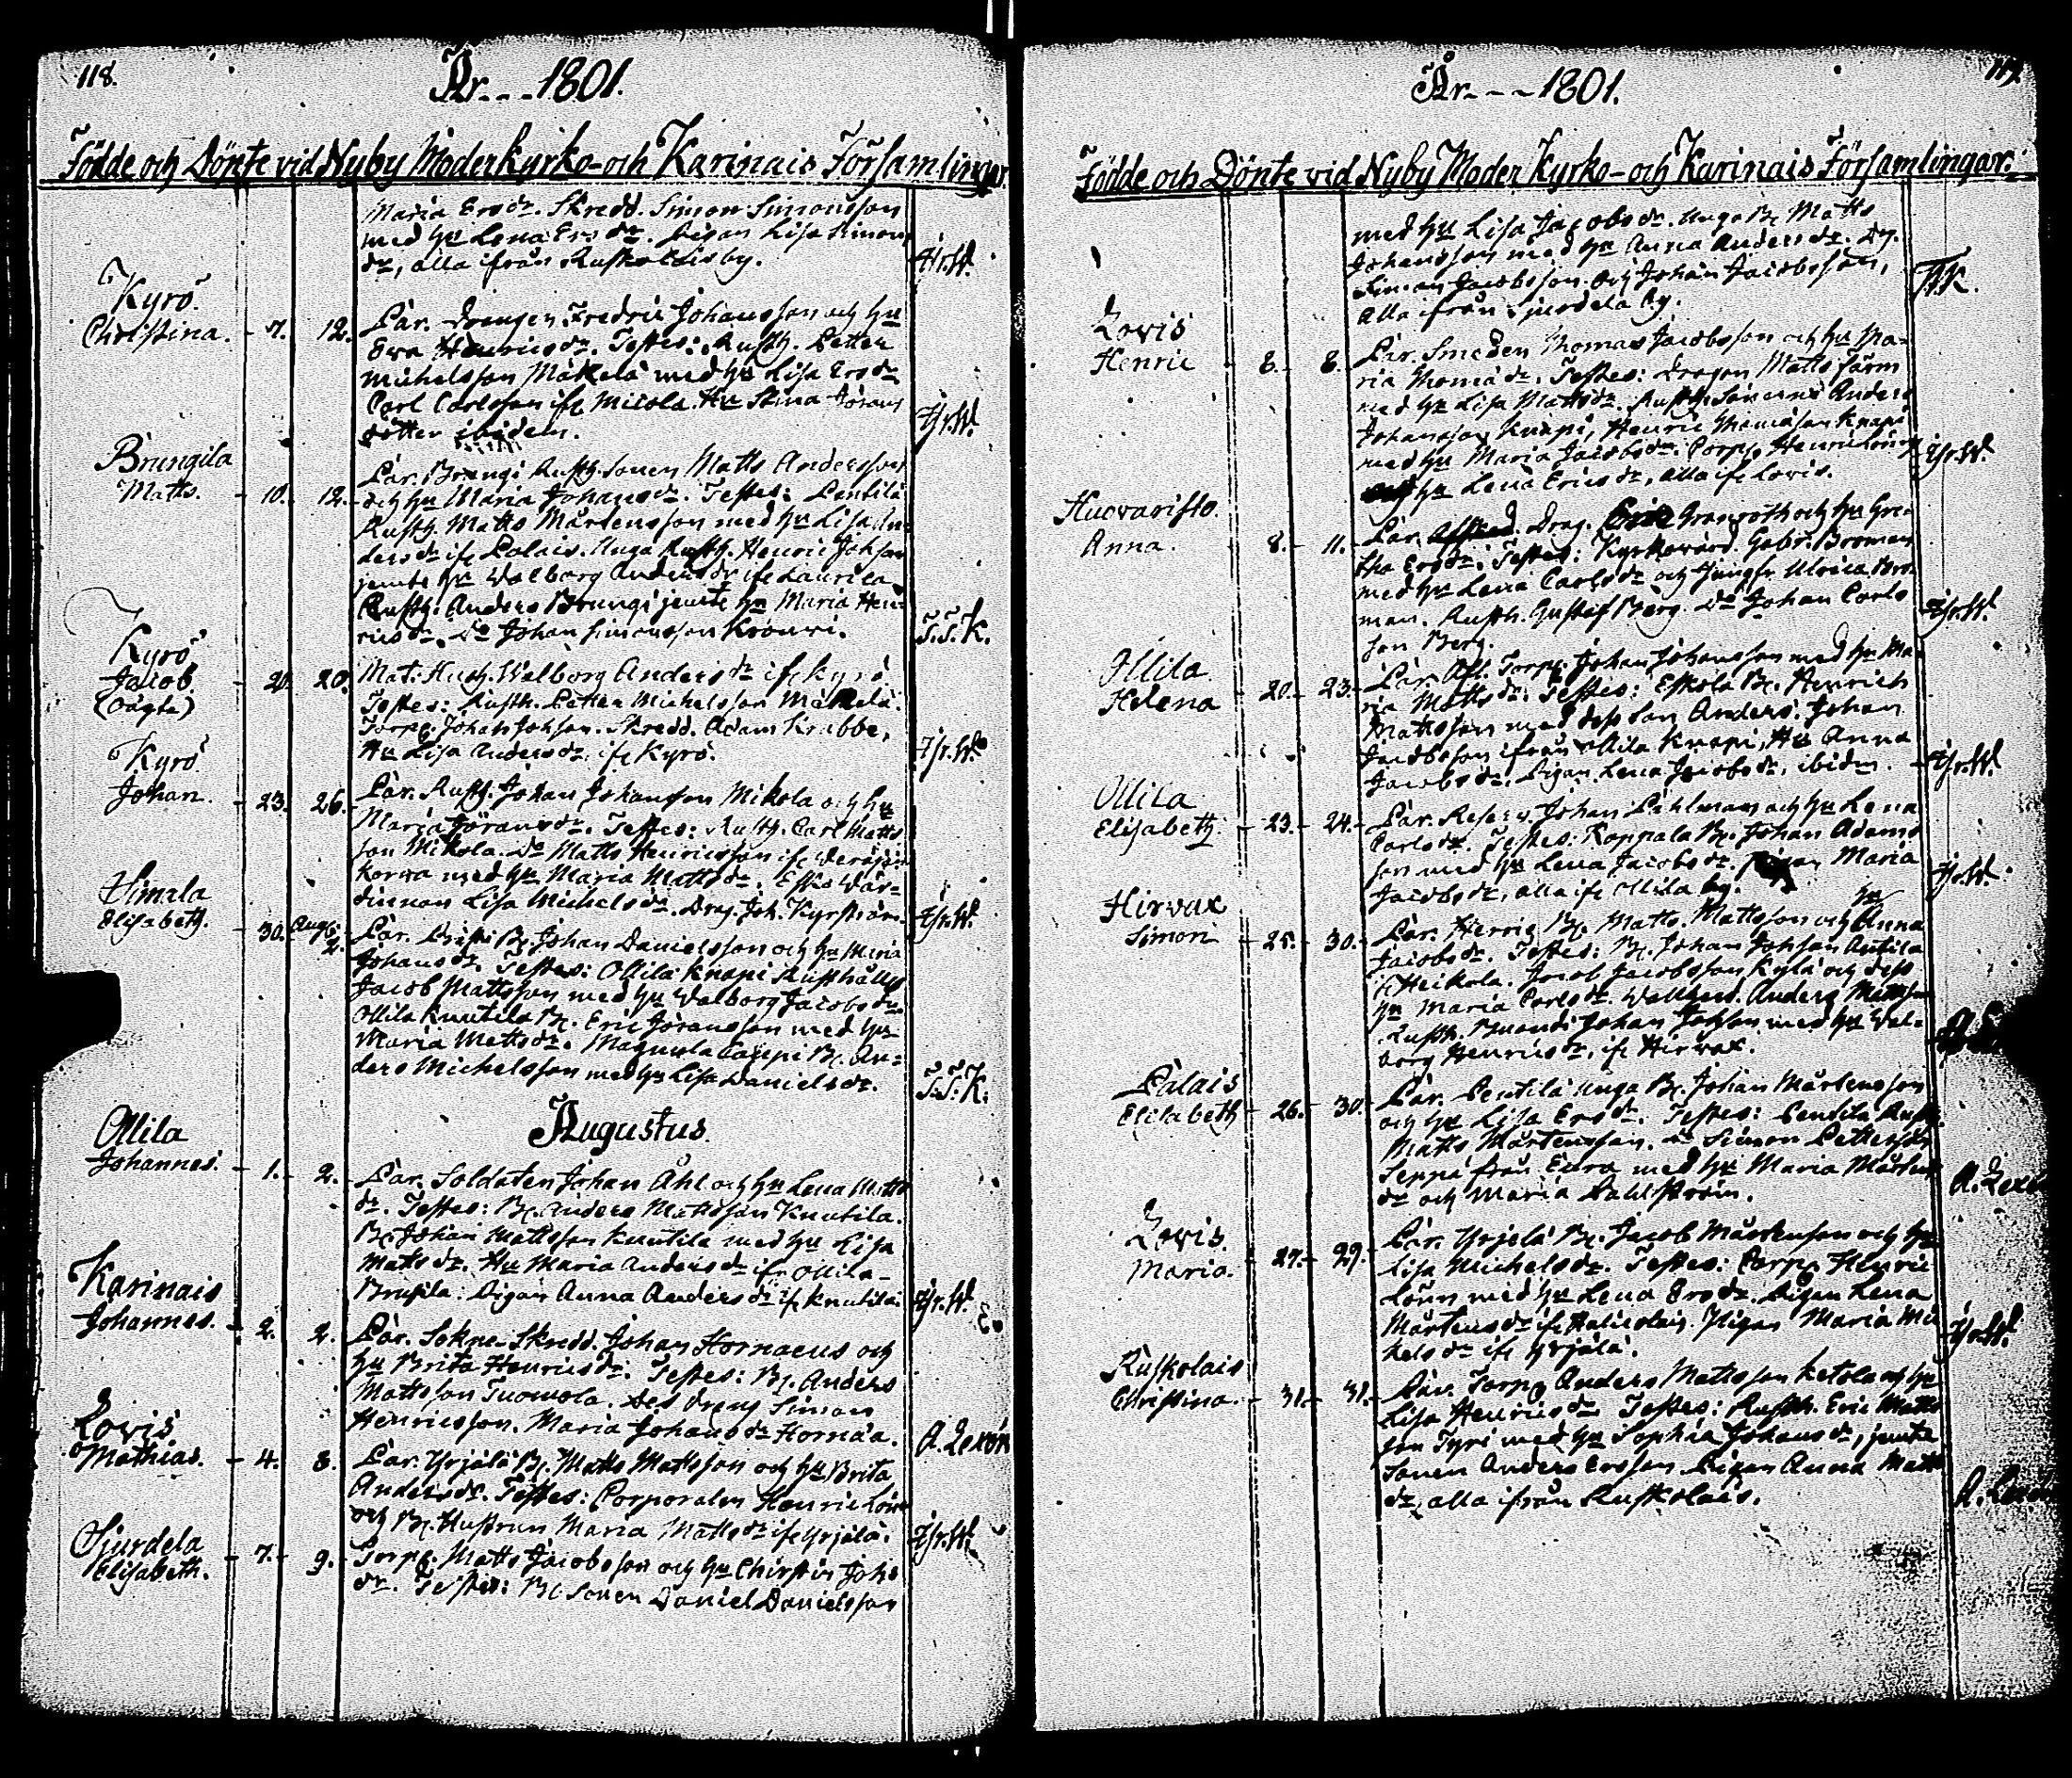 118.
År---1801.
Födde och Dönte vid Nyby Moderkyrko- och Karinais Församlingar.
Maria Ersdr. Skredd. Simon Simonsson
med hu Lena Ersdr. Pigan Lisa Simons
dr, alla ifrån Ruskolais by.
Kyrö
Christina. 7. 12. Par. Drengen Fredric Johansson och hu
Ewa Henricsdr. Testes: Rusth. Petter
Michelsson Mäkelä med hu Lisa Ersdr
Carl Carlsson ifr Micola. Hu Stina Görans
dotter ibidem.
Brungila
Matts. 10. 12. Par. Brungi Rusth. Sonen Matts Andersson
och hu Maria Johansdr. Testes: Pentilä
Rusth. Matts Mårtensson med hu Lisa An-
dersdr ifr Palais. Unga Rusth. Henric Johsson
jemte hu Walborg Andersdr ifr Laurila
Rusth. Anders Brungi jemte hu Maria Hen-
ricsdr. Do Johan Simonsson Krouwi. S.S.K.
Kyrö
Jacob
(oägta) 20. 20. Mat: Hush. Walborg Andersdr ifr Kyrö.
Testes: Rusth. Petter Michelsson Mäkelä.
Torp. Johan Johsson. Skredd. Adam Krabbe,
Hu Lisa Andersdr. ifr Kyrö.
Kyrö
Johan. 23. 26. Par. Rusth. Johan Johansson Mikola och hu
Maria Göransdr. Testes: Rusth. Carl Matts
son Mikola. Do Matts Henricsson ifr
korwa med hu Maria Mattsdr.
dinnan Lisa Michelsdr. Drag. Joh. Kyrström.
Himala
Elisabeth. 30. Aug. 2. Par. Johan Danielsson och hu Maria
Johansdr. Testes: Ollila Knapi Rusthållar
Jacob Mattsson med hu Walborg Jacobsdr
Ollila Knutila B. Eric Göransson med hu
Maria Mattsdr. Magnula Cauppi B. An-
ders Michelsson med hu Lisa Danielsdr. S.S.K.
Augustus.
Ollila
Johannes. 1. 2. Par. Soldaten Johan Åhl och hu Lena Matts
dr. Testes: B. Anders Mattsson Knutila.
B. Johan Mattsson Knutila med hu Lisa
Mattsdr. Hu Maria Andersdr ifr Ollila
Brusila. Pigan Anna Andersdr ifr Knutila.
Karinais
Johannes. 2. 2. Par. Sokne-Skredd. Johan Hornaeus och
hu Brita Henricsdr. Testes: B. Anders
Mattsson Tuomola. Des dreng Simon
Henricsson. Maria Johansdr Hornæa. A. Lexén
Lovis
Mathias. 4. 8. Par. Yrjälä B. Matts Mattsson och hu Brita
Andersdr. Testes: Corporalen Henric Lönn
och B. Hustrun Maria Mattsdr ifr Yrjälä.
Sjurdela
Elisabeth. 7. 9. Torp. Matts Jacobsson och hu Chirstin Johs
dr. Testes: B. Sonen Daniel Danielsson
119.
År---1801.
Födde och Dönte vid Nyby Moder Kyrko- och Karinais Församlingar.
med hu Lisa Jacobsdr. Unga B. Matts
Johansson med hu Anna Andersdr. Dr.
Simon Jacobsson och Johan Jacobsson,
alla ifrån Sjurdela by.
Lovis
Henric 6. 8. Par. Smeden Thomas Jacobsson och hu Ma-
ria Thomædr. Testes: Dragon Matts Färm
med hu Lisa Mattsdr. Rusth. Sönerne Anders
Johansson Knapi, Henric Thomasson Knapi
med hu Maria Jacobsdr. Corp. Henric Lönn
och hu Lena Ericsdr, alla ifr Lovis.
Huovaristo.
Anna. 8. 11. Par. Afsked. Drag. Eric Granroth och hu Gre-
tha Ersdr. Testes: Kyrkovärd. Gabr. Broman
med hu Lena Carlsdr och Jungfr. Ulrica Bro-
man. Rusth. Gustaf Berg. Do Johan Carls
son Berg.
Ollila
Helena 20. 23. Par. Afl. Torp. Johan Johansson med hu Ma-
ria Mattsdr. Testes: Eskola B. Henrich
Mattsson med dess Son Anders. Johan
Jacobsson ifrån Ollila Knapi, Hu Anna
Jacobsdr. Pigan Lena Jacobsdr, ibidm.
Ollila
Elisabeth. 23. 24. Par. Reserv. Johan Pihlman och hu Lena
Carlsdr. Testes: Koppala B. Johan Adams
son med hu Lena Jacobsdr. Pigan Maria
Jacobsdr, alla ifr Ollila by.
Hirvax
Simon 25. 30. Par. Herrig B. Matts Mattsson och hu Anna
Jacobsdr. Testes: B. Johan Johsson Antila
fr Heikola. Jacob Jacobsson Kylä och dess
hu Maria Carlsdr. Anders Mattsson
Rusth. Johan Johsson med hu Wal-
borg Henricsdr, ifr Hirvax.
Palais
Elisabeth 26. 30. Par. Pentilä Unga B. Johan Mårtensson
och hu Lisa Ersdr. Testes: Pentilä Rusth.
Matts Mårtensson. Do Simon Pettersson
Seppä från Eura med hu Maria Mårtens
dr och Maria Dahlström. A. Lexén
Lovis.
Maria. 27. 29. Par. Yrjälä B. Jacob Mårtensson och hu
Lisa Michelsdr. Testes: Corp. Henric
Lönn med hu Lena Ersdr. Pigan Lena
Mårtensdr ifr Haliolais. Pigan Maria Mi-
helsdr ifr Yrjälä.
Ruskolais
Christina. 31. 31. Par. Torp. Anders Mattsson Ketola och hu
Lisa Henricsdr. Testes: Rusth. Eric Matts
son Tyri med hu Sophia Johansdr, jemte
Sonen Anders Ersson. Pigan Anna Matts
dr, alla ifrån Ruskolais.